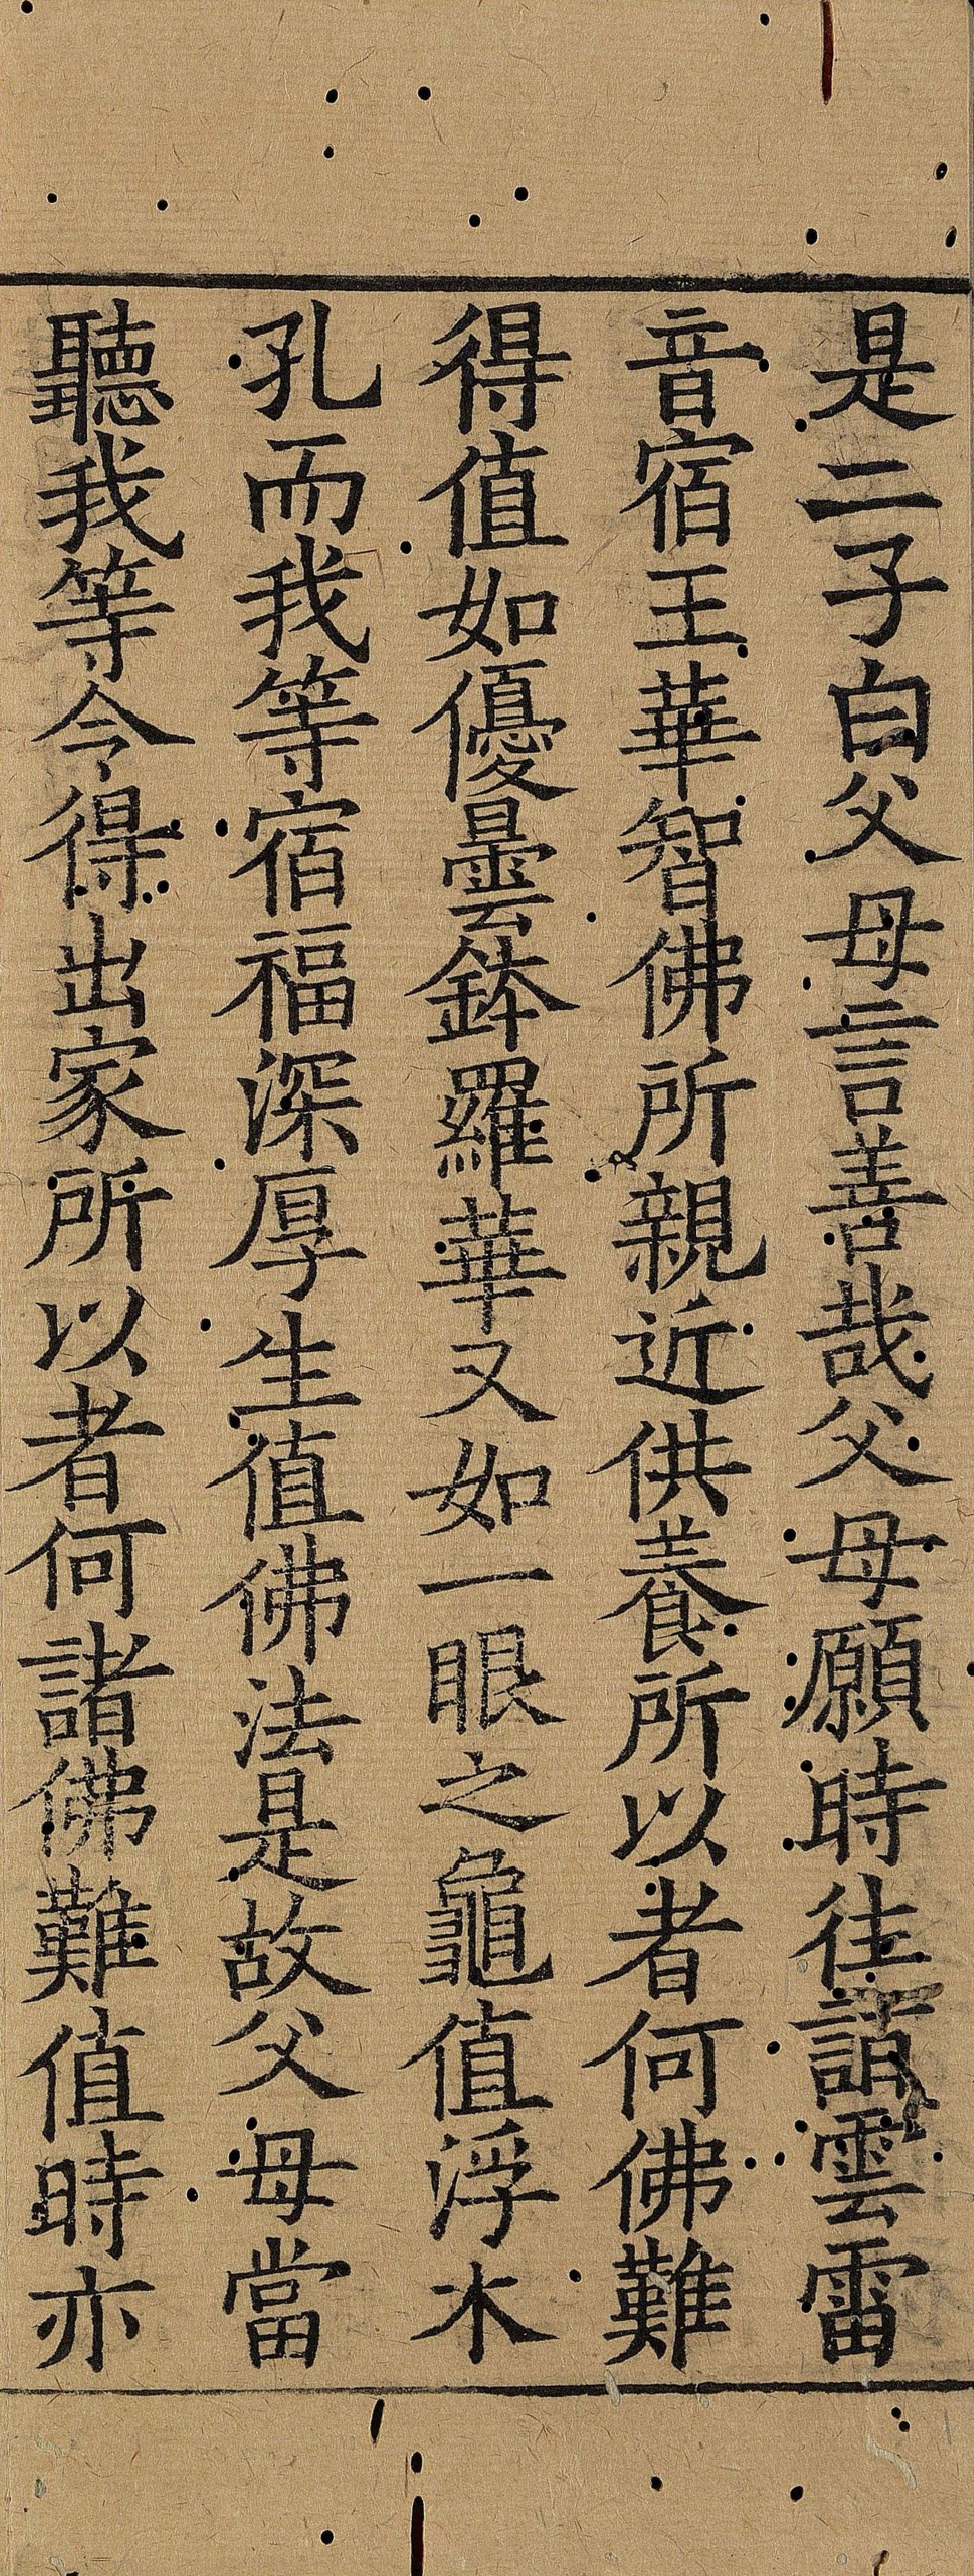 是二子白父母言善哉父母願時往詣雲雷
音宿王華智佛所親近供養所以者何佛難
得值如優曇鉢羅華又如一眼之龜值浮木
孔而我等宿福深厚生值佛法是故父母當
聽我等令得出家所以者何諸佛難值時亦